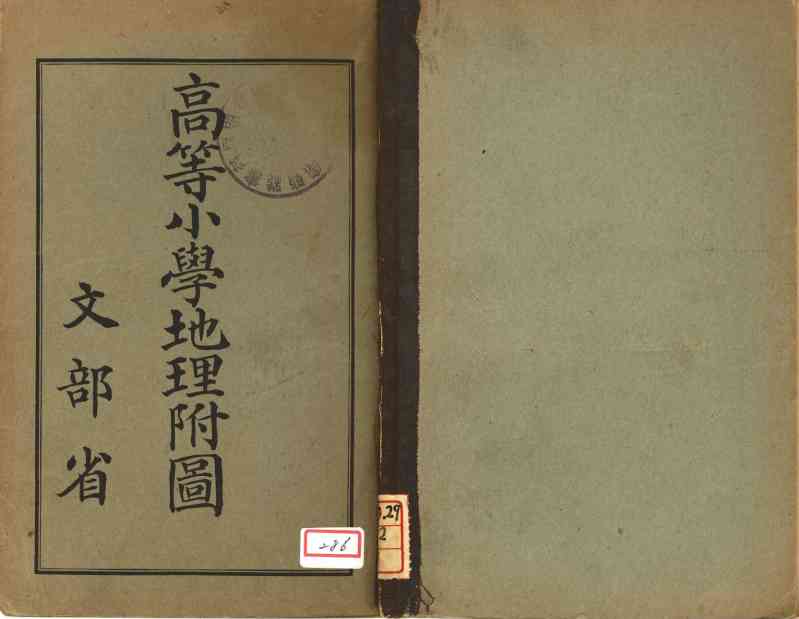 高等小學地理附圖
文部省
286
.29
2